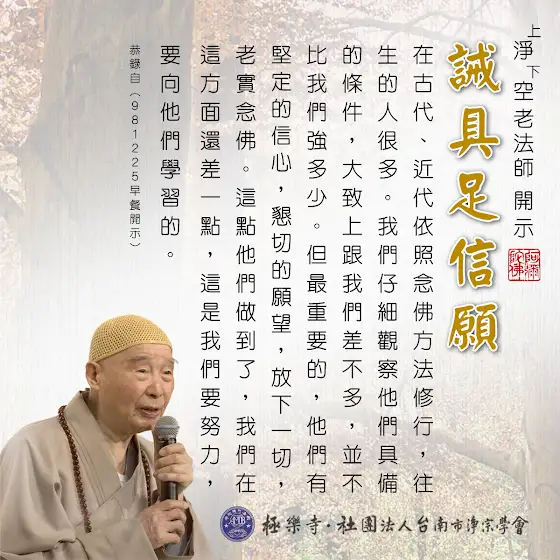 上淨下空老法師 開示
阿彌
陀佛
誠具足信願
在古代、近代依照念佛方法修行，往
生的人很多。我們仔細觀察他們具備
的條件，大致上跟我們差不多，並不
比我們強多少。但最重要的，他們有
堅定的信心，懇切的願望，放下一切，
老實念佛。這點他們做到了，我們在
這方面還差一點，這是我們要努力，
要向他們學習的。
恭錄自（981225早餐開示）
極樂寺‧社團法人台南市淨宗學會